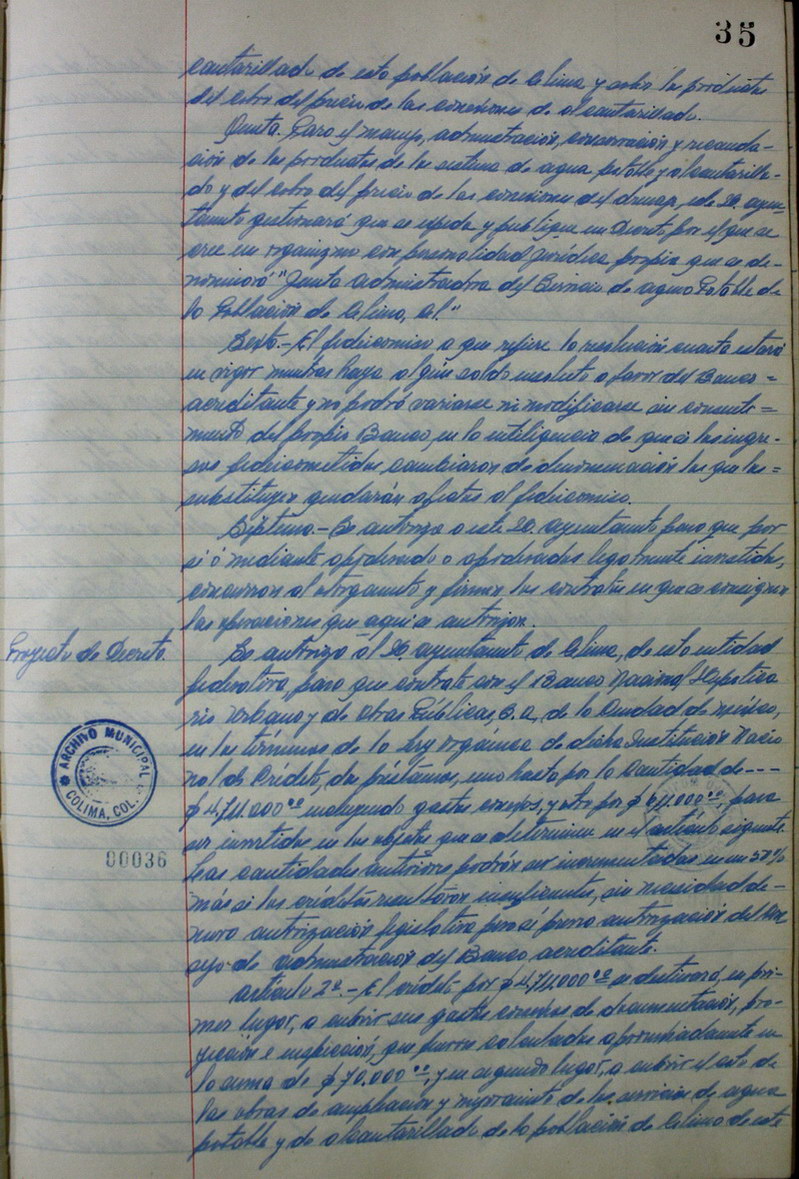 35
cantarillado de esta población de Colima y sobre los productos
del cobro del precio de las conexiones de alcantarillado.
Quinta. Para el manejo, administración, conservación y recauda-
ción de los productos de los sistemas de agua potable y alcantarilla-
do y del cobro del precio de las conexiones del drenaje, este H. ayun-
tamiento gestionará que se expida y publique un Decreto por el que se
cree un organismo con personalidad jurídica propia que se de-
nominará "Junta Administradora del Servicio de agua Potable de
la Población de Colima, Col."
Sexto.- El fideicomiso a que refiere la resolución cuarta estará
en vigor mientras haya algún saldo insoluto a favor del Banco =
acreditante y no podrá variarse ni modificarse sin consenti =
miento del propio Banco, en la inteligencia de que si los ingre-
sos fideicometidos cambiaren de denominación los que los =
substituyen quedarán afectos al fideicomiso.
Séptimo.- Se autoriza a este H. ayuntamiento para que por
si ó mediante apoderado o apoderados legalmente investidos,
concurran al otorgamiento y firmen los contratos en que se consignen
las operaciones que aquí se autorizan.
Proyecto de Decreto.
Se autoriza al H. ayuntamiento de Colima, de esta entidad
federativa, para que contrate con el Banco Nacional Hipoteca
rio Urbano y de Obras Públicas, S.A., de la Ciudad de México,
en los términos de la Ley orgánica de dicha Institución Nacio
nal de Crédito, dos préstamos, uno hasta por la Cantidad de ----
$ 4,711.000 00 incluyendo gastos conexos, y otro por $ 611.000 00, para
ser invertidos en los objetos que se determinan en el artículo siguiente.
Las cantidades anteriores podrán ser incrementadas en un 50%
más si los créditos resultaran insuficientes, sin necesidad de -
nueva autorización legislativa pero sí previa autorización del Con
sejo de administración del Banco acreditante.
Artículo 2o.- El crédito por $ 4,711.000 00 se destinará, en pri-
mer lugar, a cubrir sus gastos conexos de documentación, pro-
yección e inspección, que fueron calculados aproximadamente en
la suma de $ 70.000 00, y en segundo lugar, a cubrir el costo de
las obras de ampliación y mejoramiento de los servicios de agua
potable y de alcantarillado de la población de Colima de este
ARCHIVO MUNICIPAL
COLIMA, COL.
00036